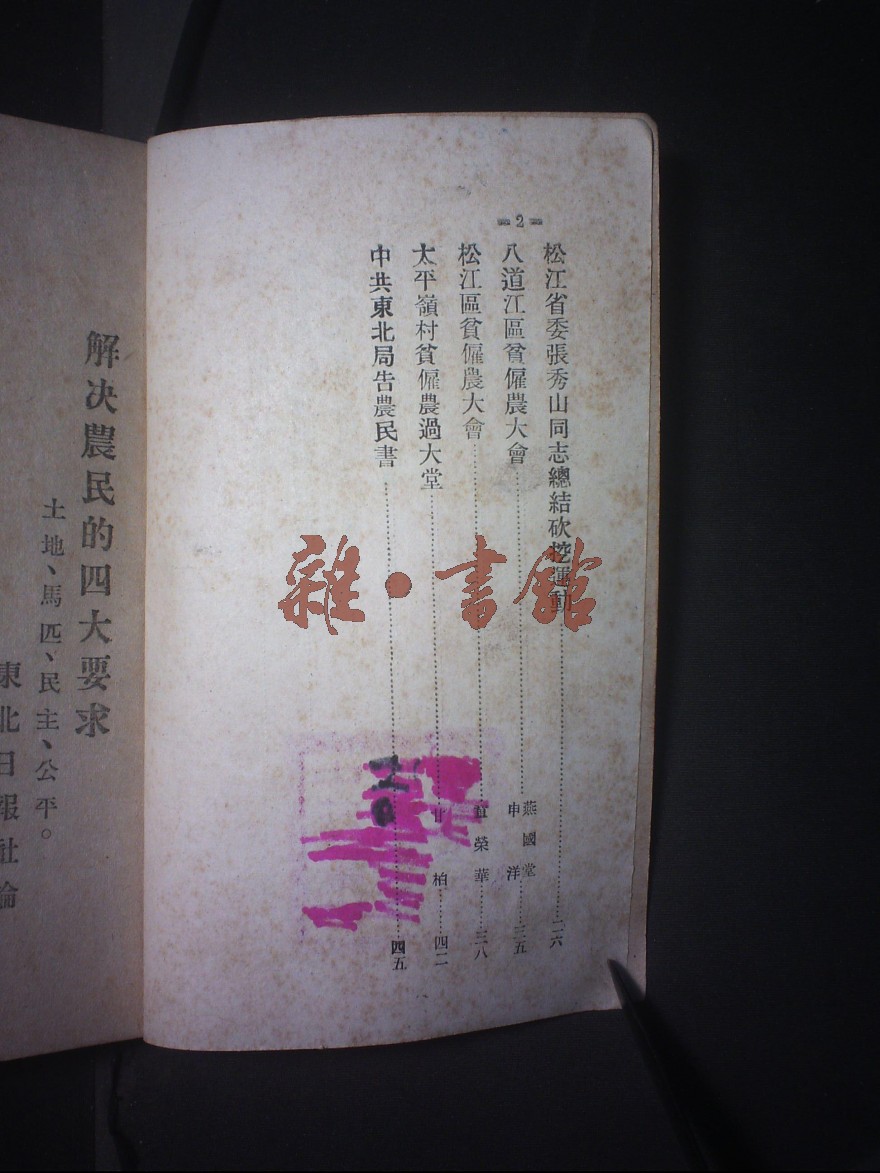 =2=
松江省委張秀山同志總結砍挖運動……二六
八道江區貧僱農大會……燕國堂 申洋……三五
松江區貧僱農大會……榮華……三八
太平嶺村貧僱農過大堂……甘柏……四二
中共東北局告農民書……四五
解决農民的四大要求
土地、馬匹、民主、公平。
東北日報社論
雜·書館